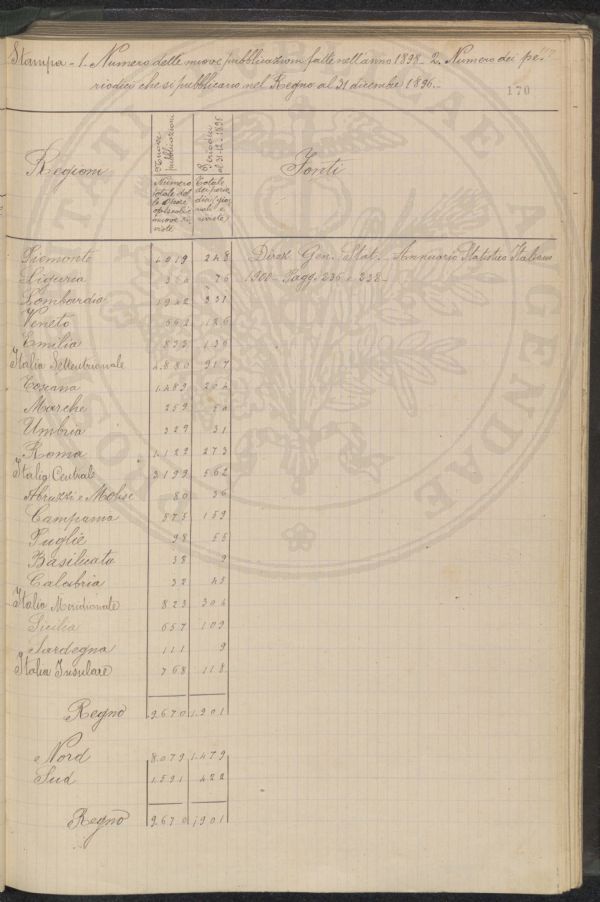 Stampa - 1. Numero delle nuove pubblicazioni fatte nell'anno 1898 - 2. Numero dei pe-
riodici che si pubblicano nel Regno al 31 dicembre 1896.
170
Regioni
Nuove pubblicazioni
Periodici al 31-12-1896
Fonti
Numero totale del le opere opuscoli e nuove ri viste
Totale dei perio dici, gior nali e riviste
Piemonte 1.019 248 Direz. Gen. Stat. - Annuario Statistico Italiano
Liguria 364 76 1900 - Pagg. 236 e 238 -
Lombardia 1.942 331
Veneto 662 126
Emilia 893 136
Italia Settentrionale 4.880 917
Toscana 1.489 204
Marche 259 54
Umbria 329 31
Roma 1.122 273
Italia Centrale 3.199 562
Abruzzi e Molise 80 36
Campania 575 159
Puglie 98 55
Basilicata 38 9
Calabria 32 45
Italia Meridionale 823 304
Sicilia 657 109
Sardegna 111 9
Italia Insulare 768 118
Regno 9.670 1.901
Nord 8.079 1.479
Sud 1.591 422
Regno 9.670 1.901